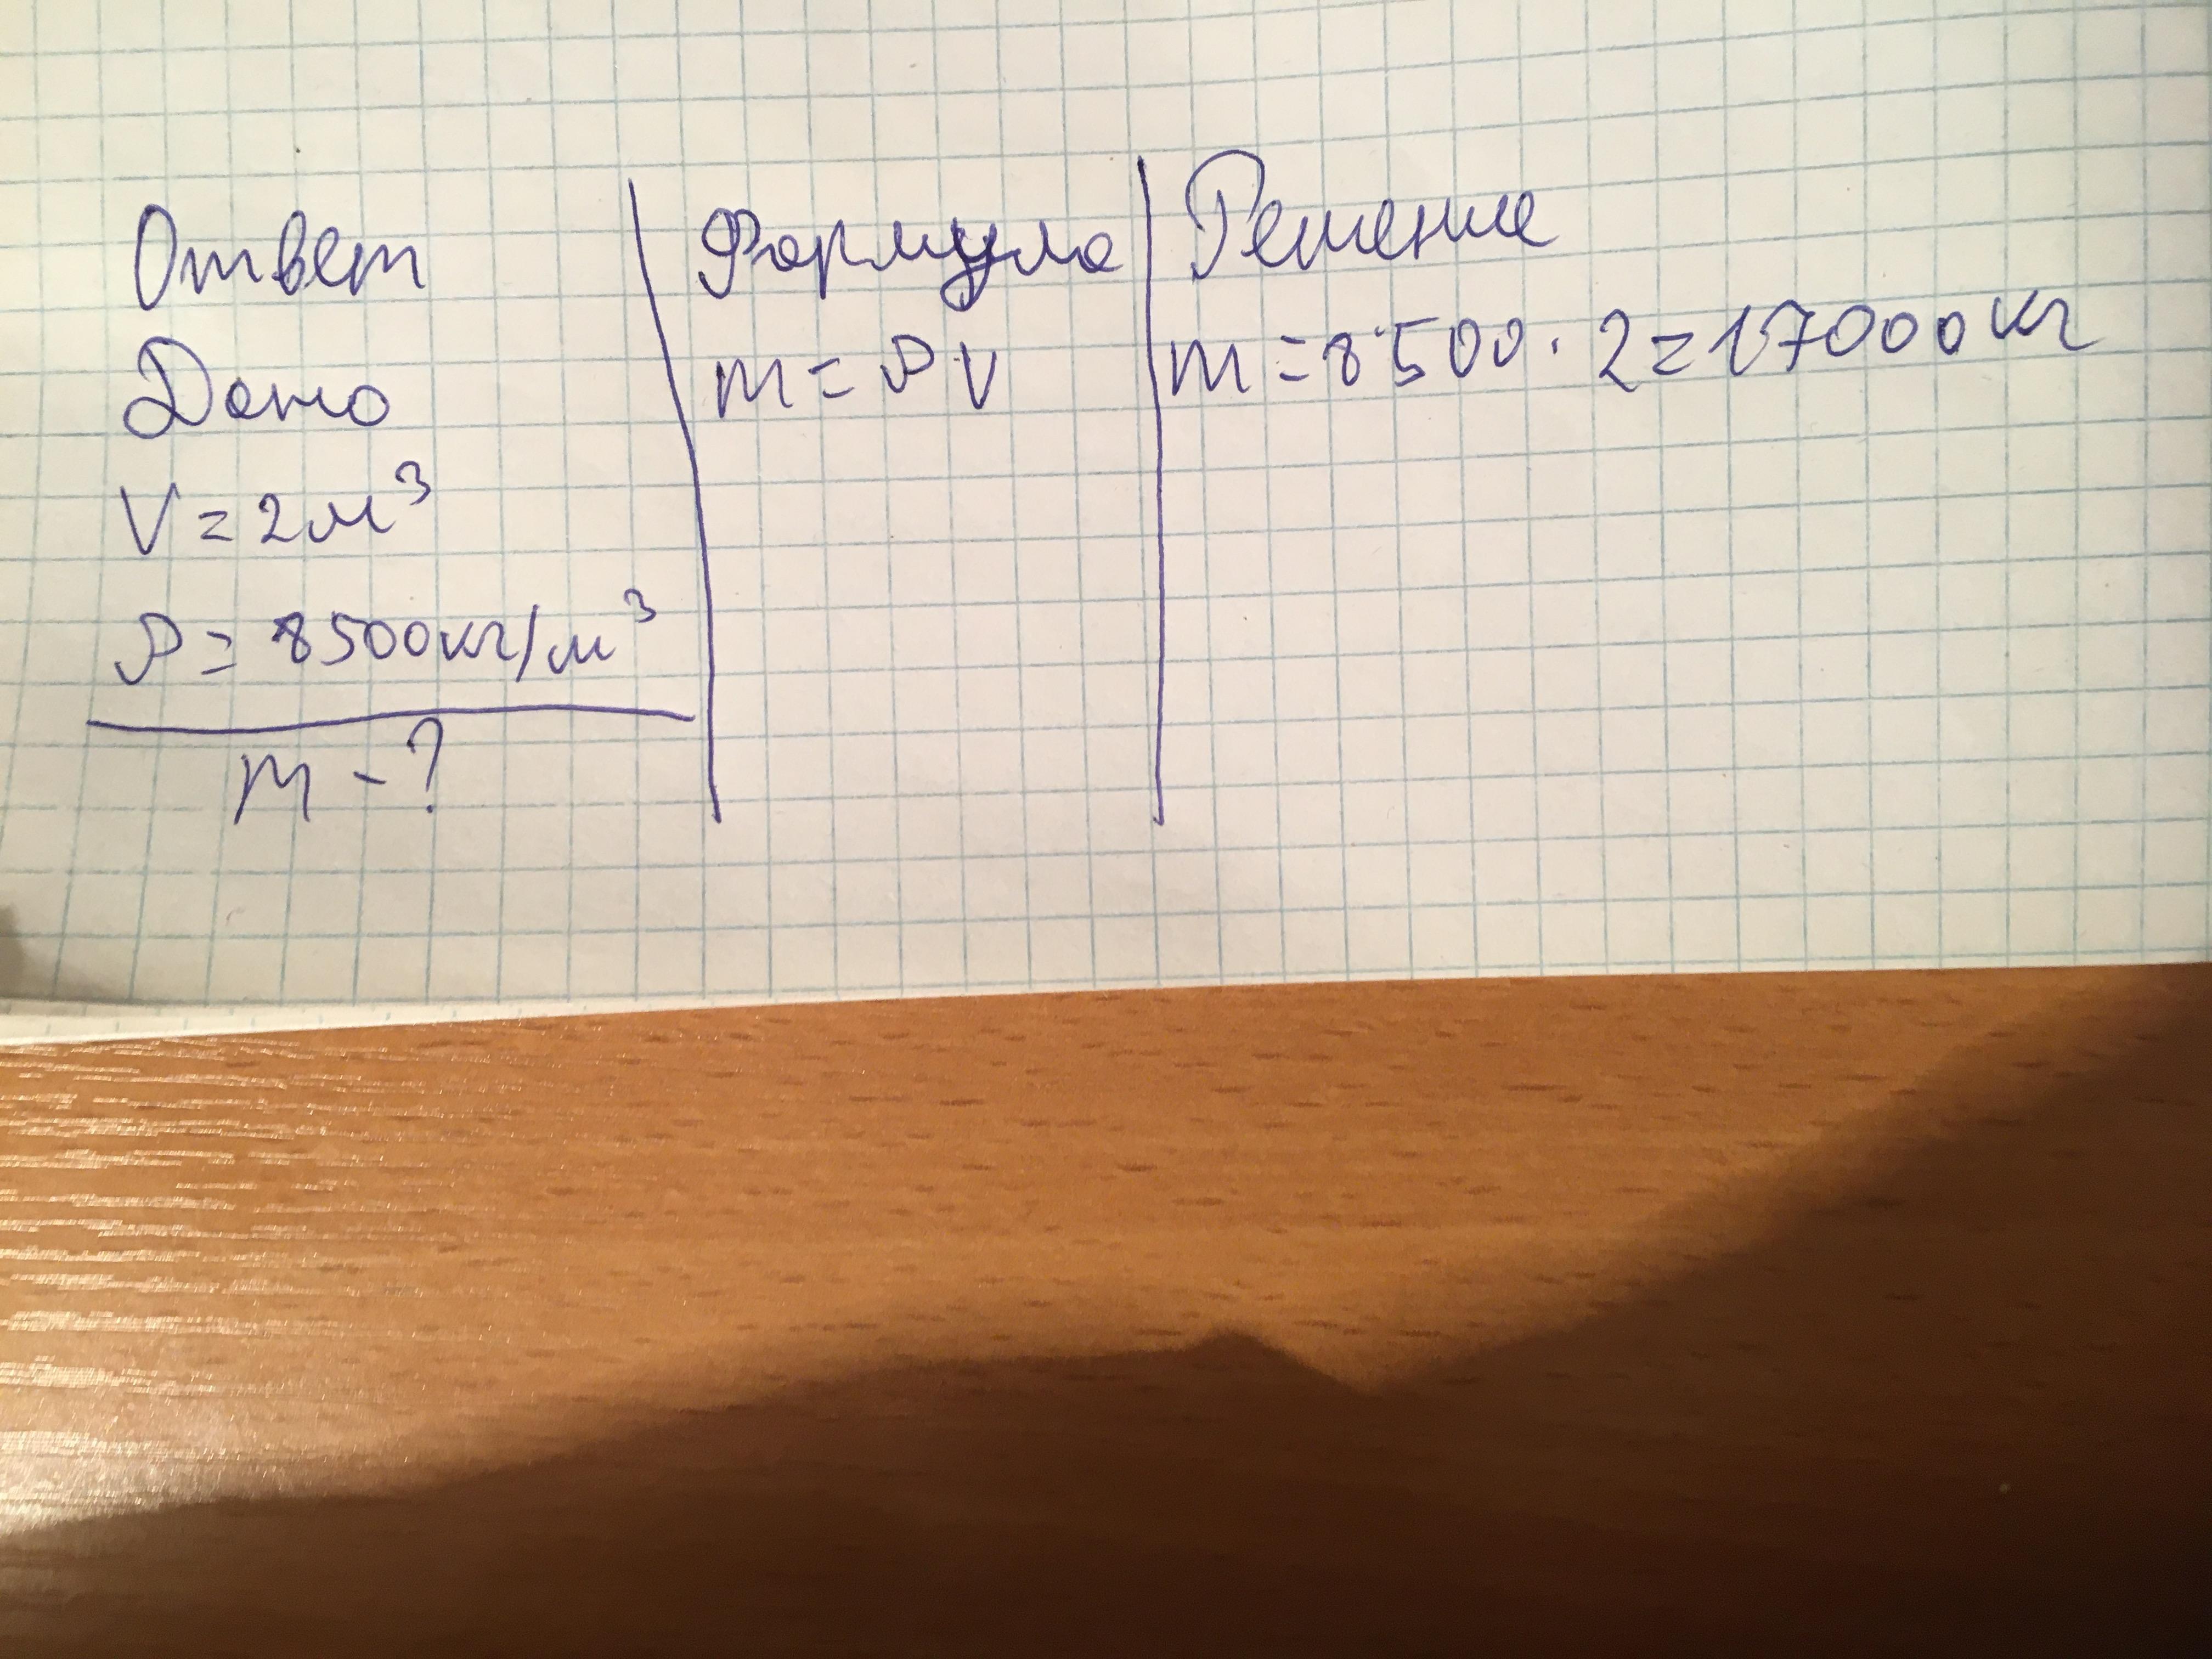 Ответ
Дано
V = 2м³
ρ = 8500кг/м³
m - ?
Формула
m = ρ V
Решение
m = 8500 · 2 = 17000 кг